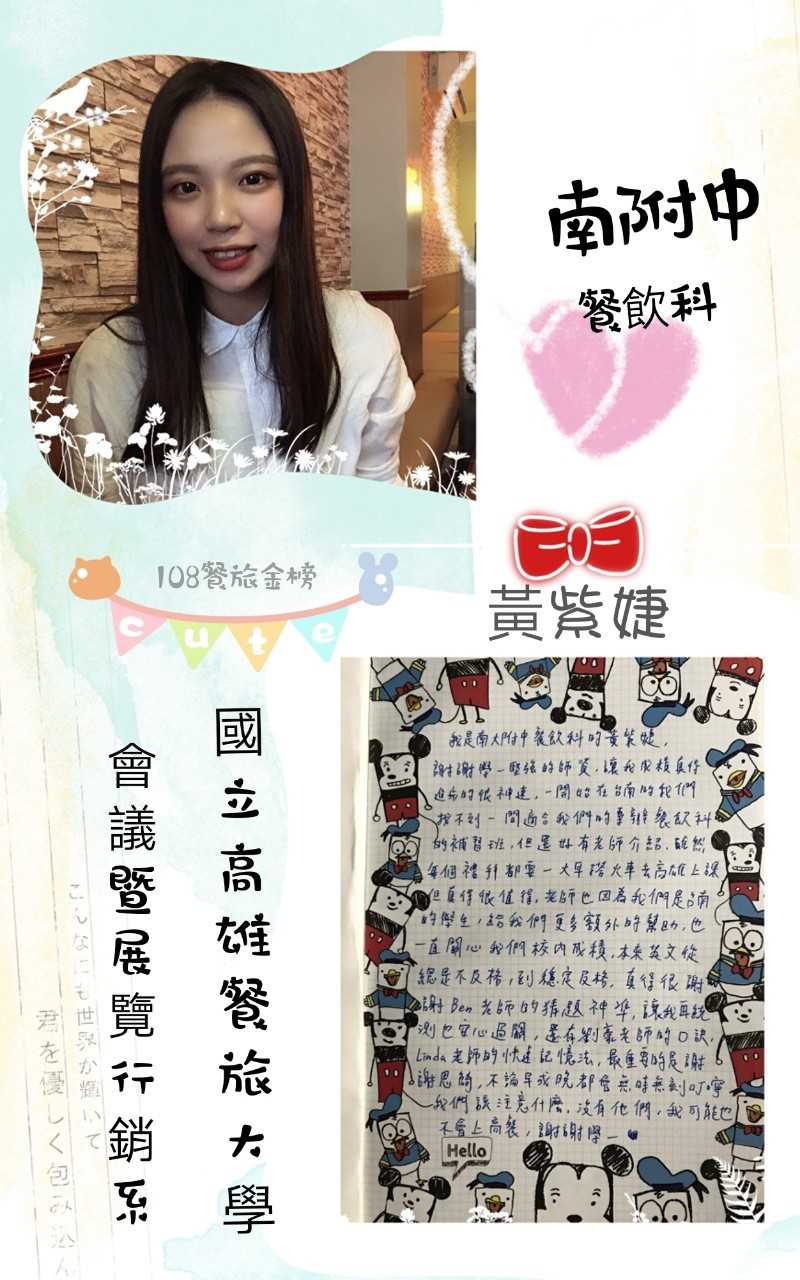 南附中
餐飲科
108餐旅金榜
cute
黃紫婕
國立高雄餐旅大學
會議暨展覽行銷系
こんなにも世界が輝いて
君を優しく包み込ん
我是南大附中餐飲科的黃紫婕，
謝謝學一堅強的師資，讓我成績真得
進步的很神速，一開始在台南的我們
找不到一間適合我們的專辦餐飲科
的補習班，但還好有老師介紹，雖然
每個禮拜都要一大早搭火車去高雄上課
但真得很值得，老師也因為我們是台南
的學生，給我們更多額外的幫助，也
一直關心我們校內成績，本來英文從
總是不及格，到穩定及格，真得很謝
謝Ben老師的猜題神準，讓我再統
測也安心過關，還有劉豪老師的口訣，
Linda老師的快速記憶法，最重要的是謝
謝思簡，不論早或晚都會無時無刻叮嚀
我們該注意什麼，沒有他們，我可能也
不會上高餐，謝謝學一
Hello